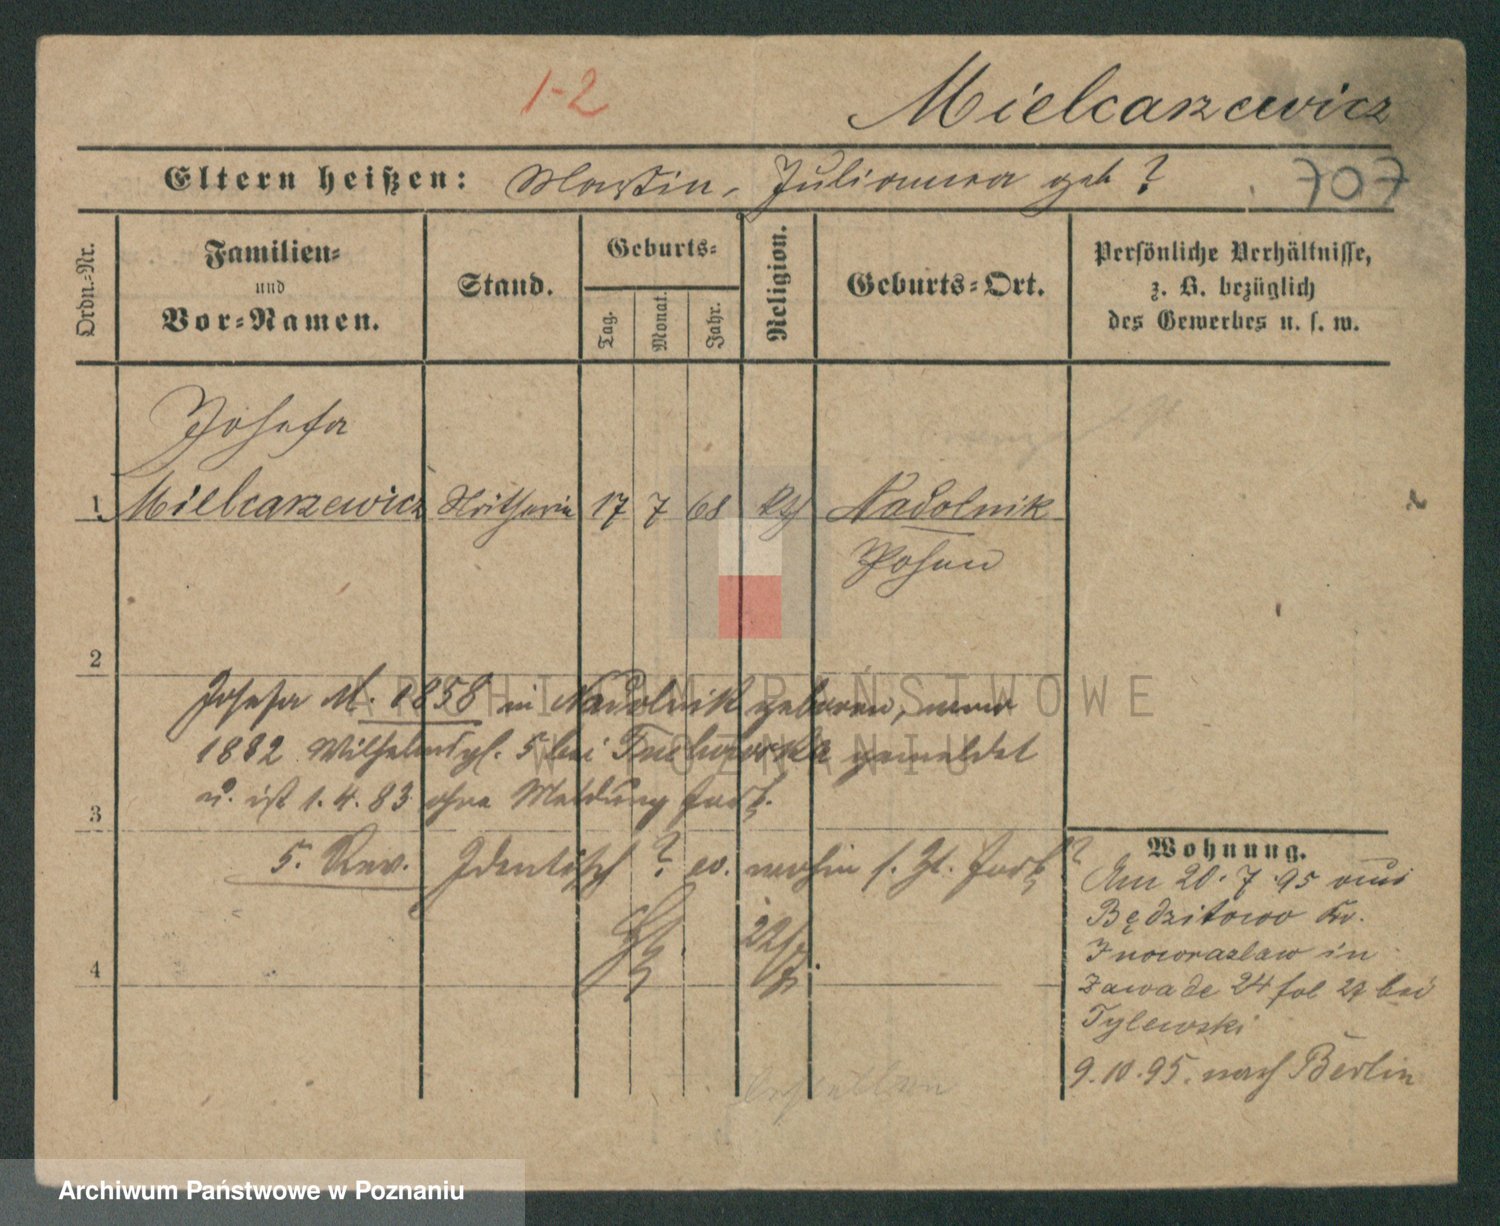 1-2
Mielcarzewicz
Eltern heißen: Martin, Julianna geb ?
707
Ordn.-Nr.
Familien-
und
Vor-Namen.
Stand.
Geburts-
Tag.
Monat.
Jahr.
Religion.
Geburts-Ort.
Persönliche Verhältnisse,
z. B. bezüglich
des Gewerbes u. s. w.
Josefa
1 Mielcarzewicz 17 7 68 Nadolnik
Posen
2
Josefa M. 1858 in Nadolnik geboren, war
1882 Wilhelmspl. 5 bei gemeldet
u. ist 1. 4. 83 ohne Meldung fort.
3
5. Rev. Identisch ? ev. wohin s. Zt. fort ?
22/7
4
Wohnung.
Am 20. 7. 95 aus
Będzitowo Kr.
Inowrazlaw in
Zawade 24 fol 27 bei
Tylewski
9. 10. 95. nach Berlin
ARCHIWUM PAŃSTWOWE
W POZNANIU
Archiwum Państwowe w Poznaniu